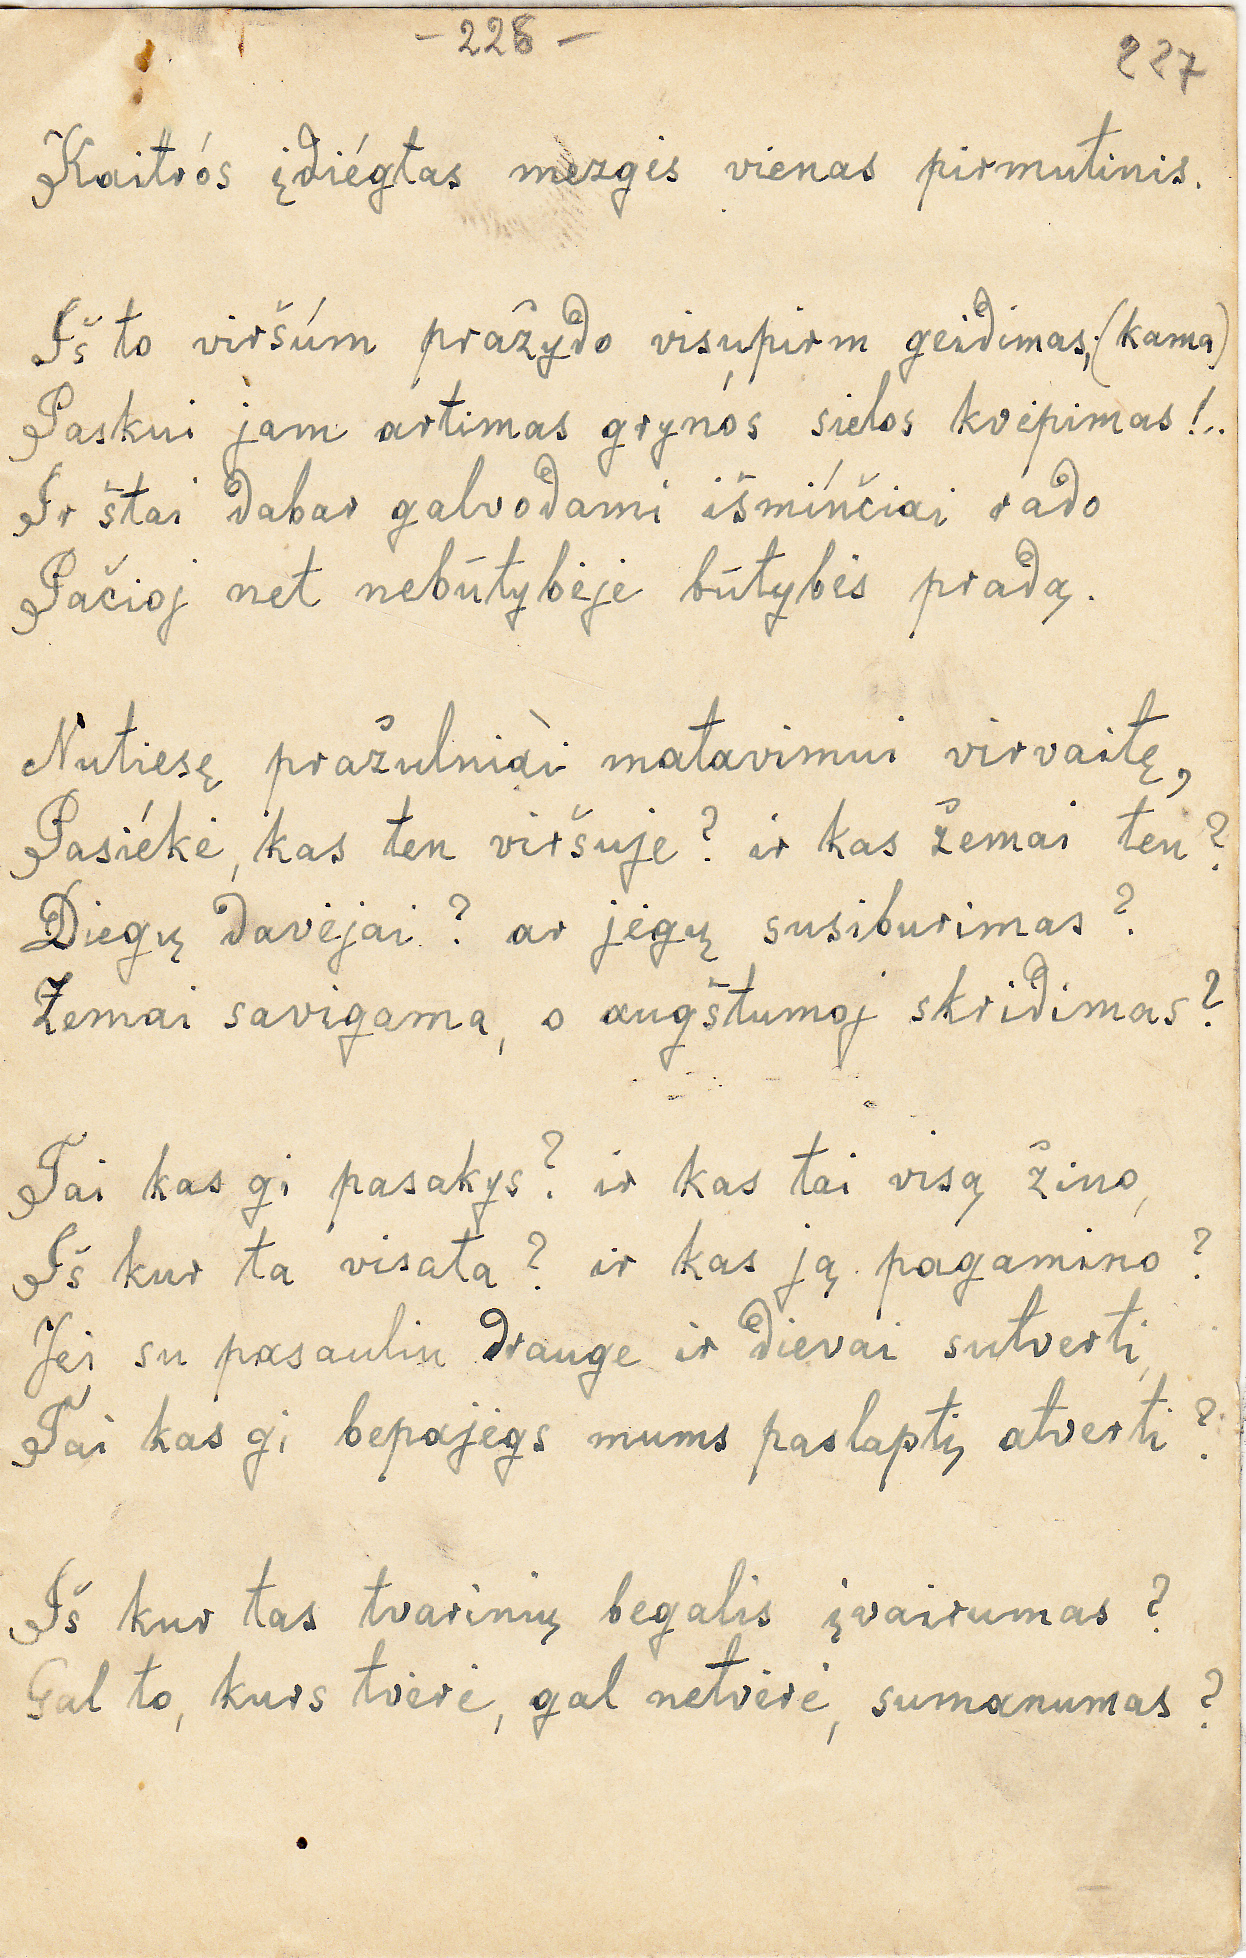 - 226 -
227
Kaitrós įdiégtas mezgės vienas pirmutinis.
Iš to viršúm pražydo visųpirm geidimas, (kama)
Paskui jam artimas grynós sielos kvėpimas!..
Ir štai dabar galvodami išmínčiai rado
Pačioj net nebūtybėje būtybės pradą.
Nutiesę pražulniai matavimui virvaitę,
Pasiékė, kas ten viršuje? ir kas žemai ten?
Diegų davėjai? ar jėgų susiburimas?
Žemai savigama, o augštumoj skridimas?
Tai kas gi pasakys? ir kas tai visą žino,
Iš kur ta visata? ir kas ją pagamino?
Jei su pasauliu drauge ir dievai sutverti,
Tai kas gi bepajėgs mums paslaptį atverti?
Iš kur tas tvarinių begalis įvairumas?
Gal to, kurs tvėrė, gal netvėrė, sumanumas?